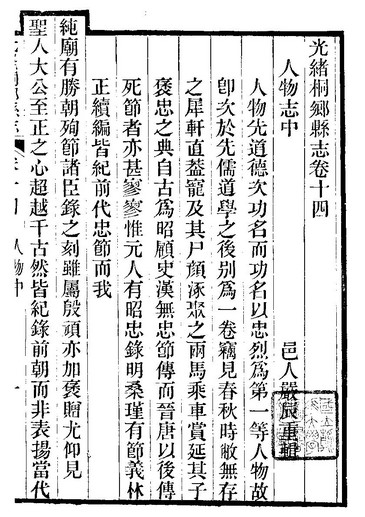 光緒桐鄉縣志卷十四
邑人嚴辰重輯
人物志中
人物先道德次功名而功名以忠烈爲第一等人物故
卽次於先儒道學之後別爲一卷竊見春秋時敝無存
之犀軒直葢寵及其尸顏涿聚之兩馬乘車賞延其子
褒忠之典自古爲昭顧史漢無忠節傳而晉唐以後傳
死節者亦甚寥寥惟元人有昭忠錄明桑瑾有節義林
正續編皆紀前代忠節而我
純廟有勝朝殉節諸臣錄之刻雖屬殷頑亦加褒贈尤仰見
聖人大公至正之心超越千古然皆紀錄前朝而非表揚當代
人物中
一